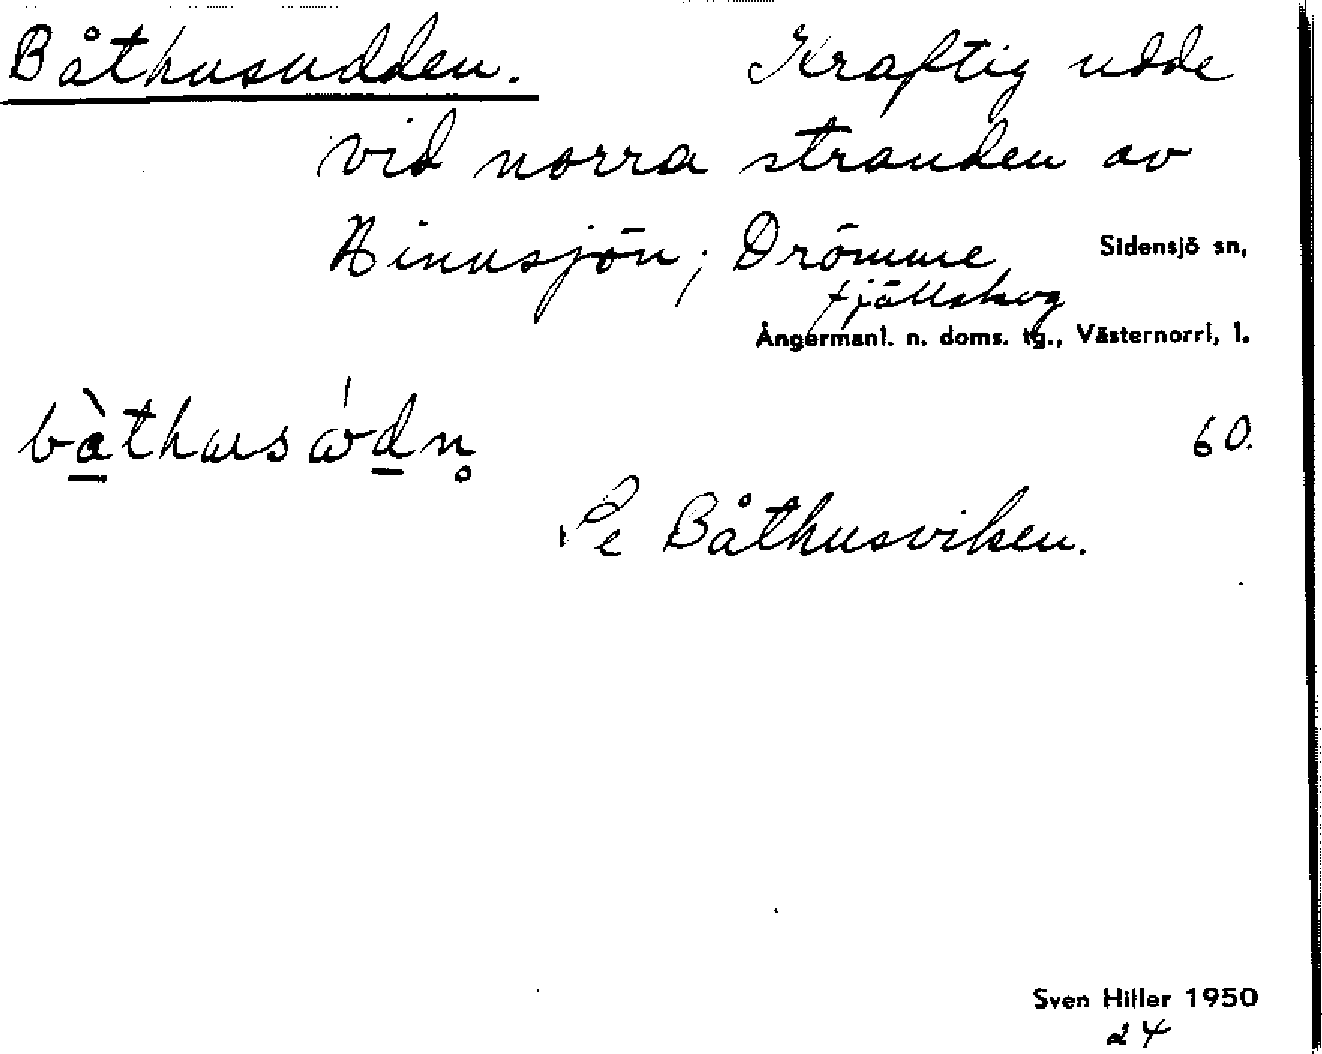 Båthusudden. Kraftig udde
vid norra stranden av
Hinnsjön; Drömme Sidensjö sn,
fjällskog
Ångermanl. n. doms. tg., Västernorrl. l.
60.
Se Båthusviken.
Sven Hiller 1950
24